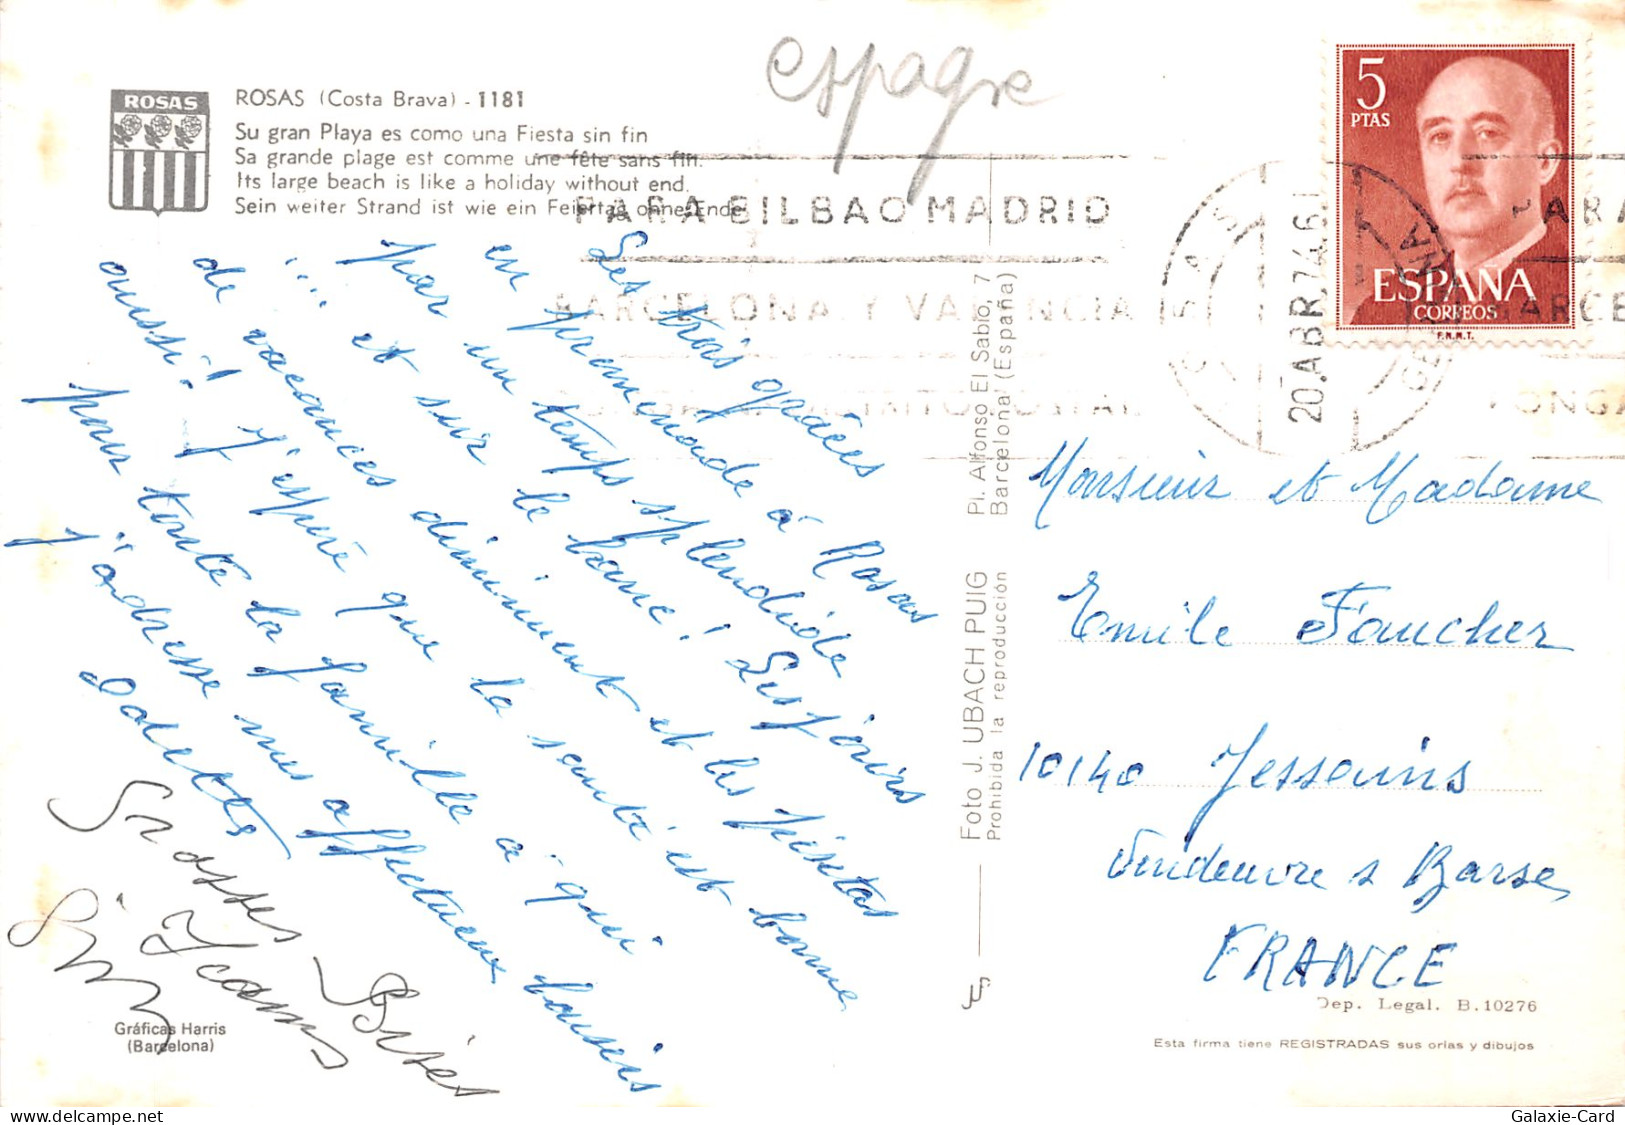 espagne
ROSAS
ROSAS (Costa Brava) - 1181
Su gran Playa es como una Fiesta sin fin
Sa grande plage est comme une fête sans fin.
Its large beach is like a holiday without end.
Sein weiter Strand ist wie ein Feiertag ohne Ende
PARA BILBAO MADRID
BARCELONA Y VALENCIA
20.ABR.74.
GERONA
5
PTAS
ESPAÑA
CORREOS
F.N.M.T.
PARA
BARCE
Les trois grâces
en promenade à Rosas
par un temps splendide
... et sur le banc! Les jours
de vacances diminuent et les pésetas
aussi! J'espère que la santé est bonne
pour toute la famille à qui
j'adresse mes affectueux baisers
Odette
Grosses Bises
Gráficas Harris
(Barcelona)
Pl. Alfonso El Sabio, 7
Barcelona (España)
Foto J. UBACH PUIG
Prohibida la reproducción
Monsieur et Madame
Emile Faucher
10140 Jessains
Vendeuvre s Barse
FRANCE
Dep. Legal. B.10276
Esta firma tiene REGISTRADAS sus orlas y dibujos
delcampe.net
Galaxie-Card